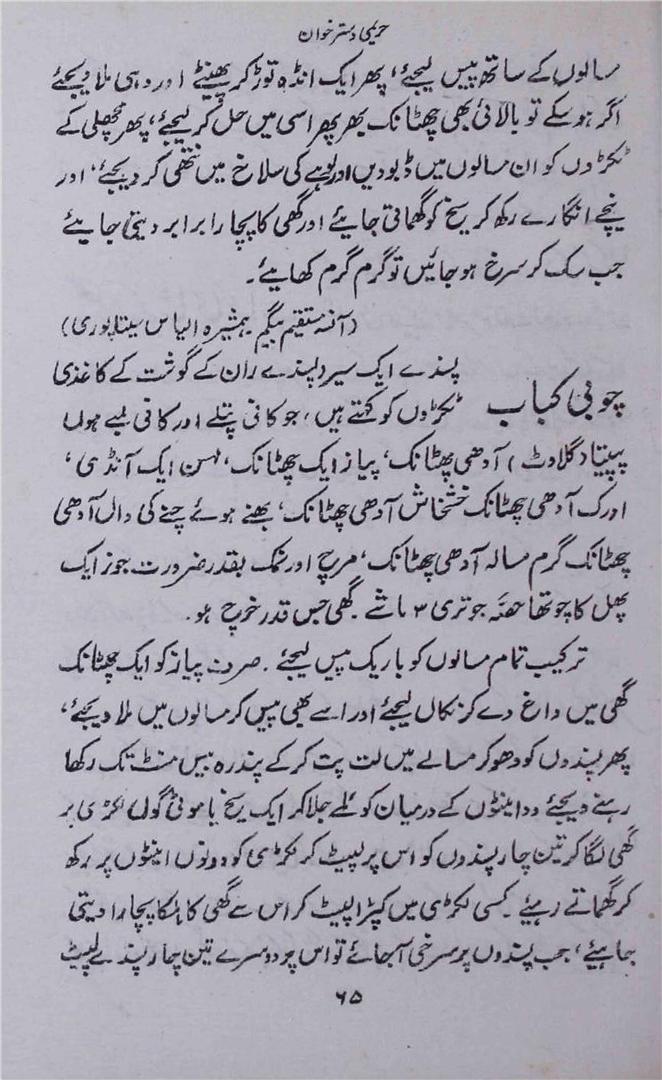 حریمی دسترخوان
سالوں کے ساتھ پیس لیجئے، پھر ایک انڈہ توڑ کر پھینٹے اور دہی ملا دیجئے
اگر ہو سکے تو بالائی بھی چھٹانک بھر پھر اسی میں حل کر لیجئے، پھر مچھلی کے
ٹکڑوں کو ان مسالوں میں ڈبو دیں اور لوہے کی سلاخ میں نتھی کر دیجئے، اور
نیچے انگارے رکھ کر سیخ کو گھماتی جایئے اور گھی کا پچارا برابر دیتی جایئے
جب سک کر سرخ ہو جائیں تو گرم گرم کھایئے۔
(آنسہ مستقیم بیگم ہمشیرہ الیاس سیتاپوری)
پسندے ایک سیر (پسندے ران کے گوشت کے کاغذی
چوبی کباب ٹکڑوں کو کہتے ہیں، جو کافی پتلے اور کافی لمبے ہوں
پپیتا (گلاوٹ) آدھی چھٹانک، پیاز ایک چھٹانک، لہسن ایک آنڈی،
ادرک آدھی چھٹانک خشخاش آدھی چھٹانک، بھنے ہوئے چنے کی دال آدھی
چھٹانک گرم مسالہ آدھی چھٹانک، مرچ اور نمک بقدر ضرورت جوز ایک
پھل کا چوتھا حصّہ جوتری ۳ ماشے۔ گھی جس قدر خرچ ہو۔
ترکیب تمام مسالوں کو باریک پیس لیجئے۔ صرف پیاز کو ایک چھٹانک
گھی میں داغ دے کر نکال لیجئے اور اسے بھی پیس کر مسالوں میں ملا دیجئے،
پھر پسندوں کو دھو کر مسالے میں لت پت کر کے پندرہ بیس منٹ تک رکھا
رہنے دیجئے دو اینٹوں کے درمیان کوئلے جلا کر ایک سیخ یا موٹی گول لکڑی پر
گھی لگا کر تین چار پسندوں کو اس پر لپیٹ کر لکڑی کو دونوں اینٹوں پر رکھ
کر گھماتے رہیئے۔ کسی لکڑی میں کپڑا لپیٹ کر اس سے گھی کا ہلکا پچارا دیتی
جایئے، جب پسندوں پر سرخی آجائے تو اس پر دوسرے تین چار پسندے لپیٹ
۶۵